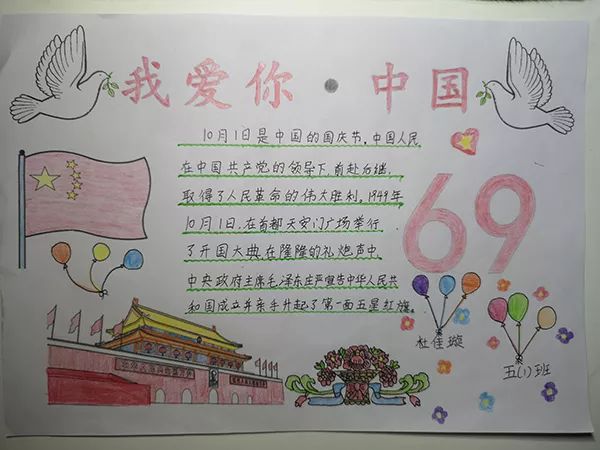 我爱你·中国
10月1日是中国的国庆节，中国人民
在中国共产党的领导下，前赴后继，
取得了人民革命的伟大胜利，1949年
10月1日，在首都天安门广场举行
了开国大典，在隆隆的礼炮声中，
中央政府主席毛泽东庄严宣告中华人民共
和国成立并亲手升起了第一面五星红旗。
69
杜佳璇
五(1)班